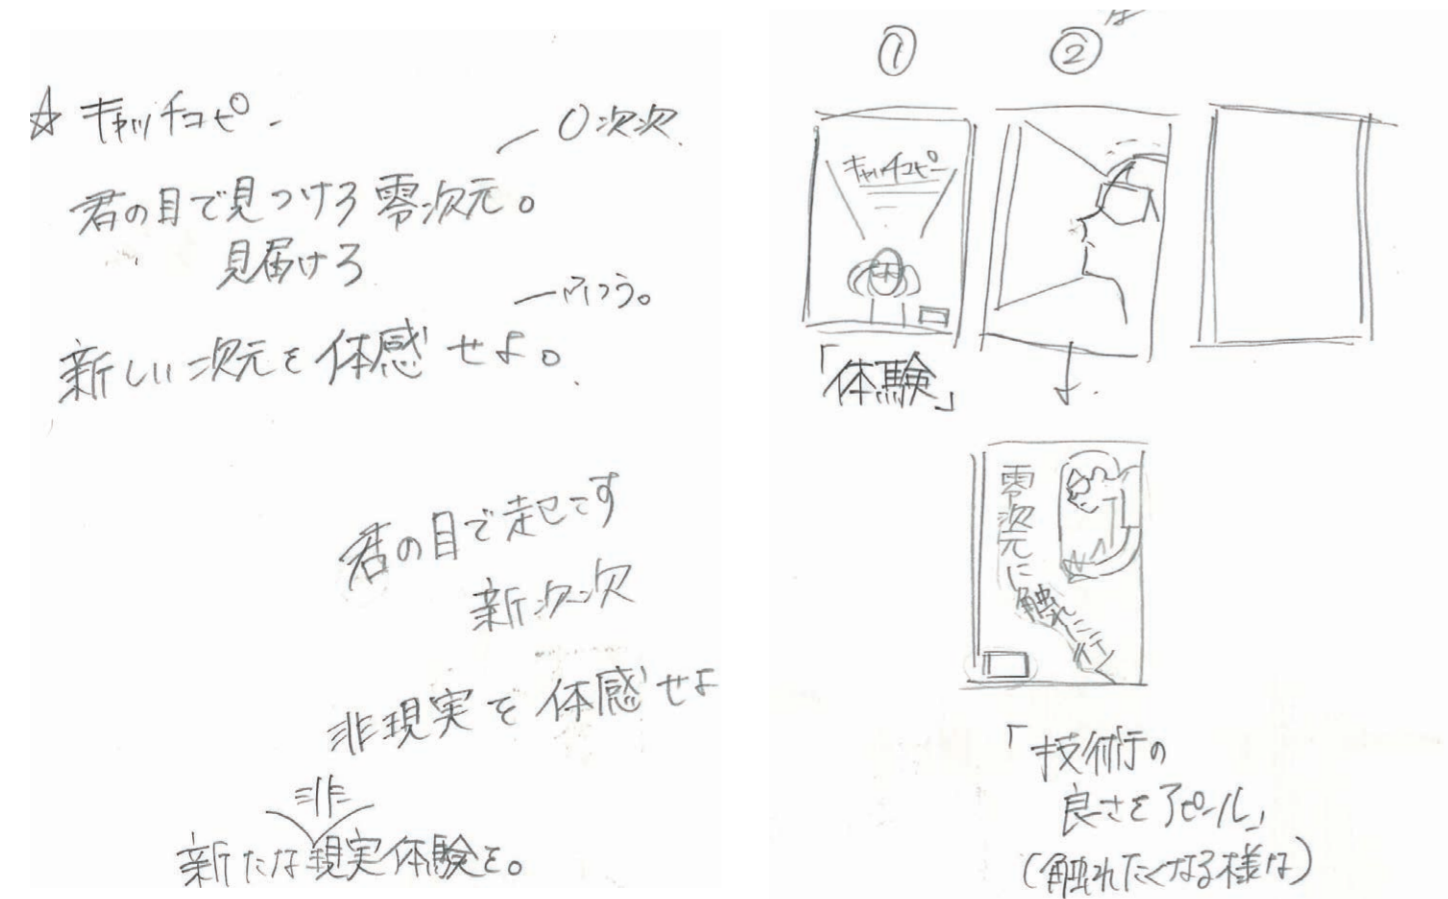 ☆ キャッチコピー
0次次
君の目で見つけろ零次元。
見届けろ
ふつう。
新しい次元を体感せよ。
君の目で起こす
新次次
非現実を体感せよ
非
新たな現実体験を。
① ②
キャッチコピー
「体験」
零次元に触れに行
「技術の
良さをアピール」
(触れたくなる様な)